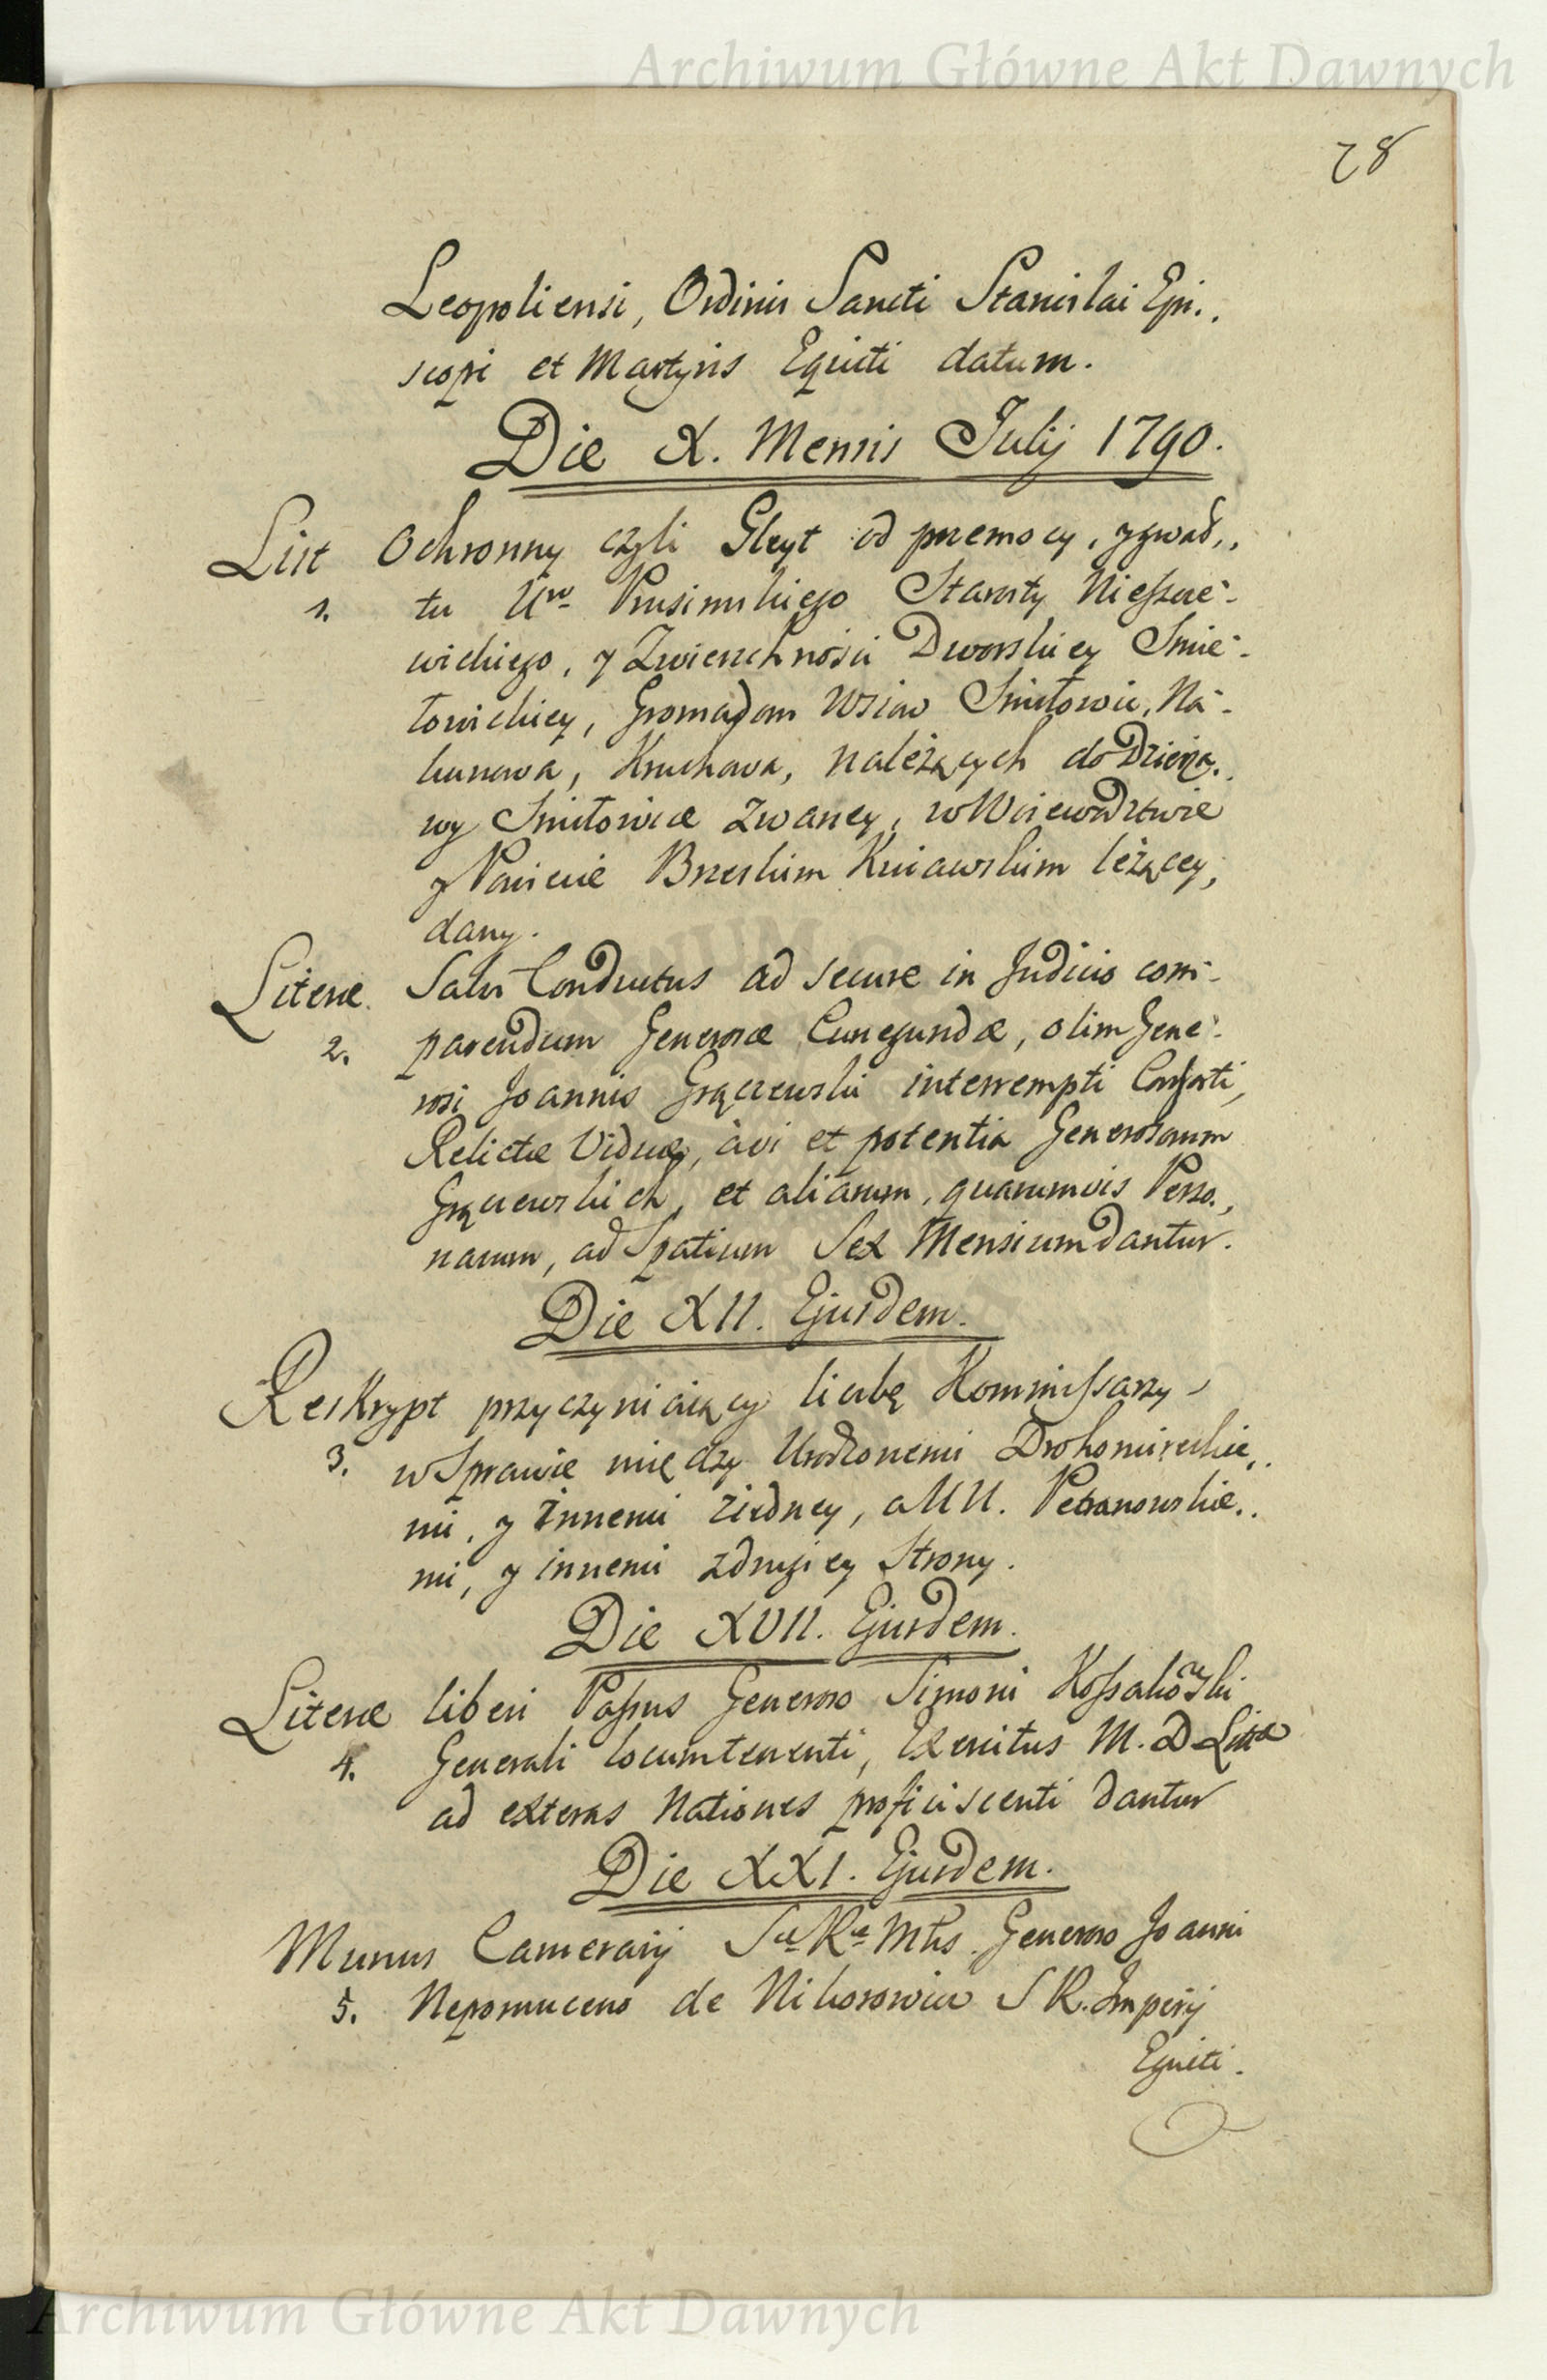 Archiwum Główne Akt Dawnych
28
Leopoliensi, Ordinis Sancti Stanislai Epi„
scopi et Martyris Equiti datum.
Die X. Mensis Julij 1790.
List Ochronny czyli Gleyt od przemocy, y gwał„
1. tu Urº Prusimskiego Starosty Nieszcze-
wickiego, y Zwierzchności Dworskiey Smie-
łowickiey, Gromadom Wsiow Smiłowic, Na-
kunowa, Kruchowa, należących do Dzierża„
wy Smiłowice zwaney, w Woiewodztwie
y Powiecie Brzeskim Kuiawskim leżącey,
dany.
Literæ Salvi Conductus ad secure in Judicio com-
2. parendum Generosæ Cunegundæ, olim Gene-
rosi Joannis Grączewski interrempti Consorti,
Relictæ Viduæ, à vi et potentia Generosorum
Grączewskich, et aliarum, quarumvis Perso„
narum, ad Spatium Sex Mensium dantur.
Die XII. Ejusdem.
Reskrypt przyczyniaiący liczbę Kommissarzy
3. w Sprawie między Urodzonemi Drohomireckie„
mi, y innemi ziedney, a UU. Petranowskie„
mi, y innemi zdrugiey Strony.
Die XVII. Ejusdem.
Literæ liberi Passus Generoso Simoni Kossakowski
4. Generali locumtenenti, Exercitus M. D. Litt
ad exteras Nationes proficiscenti dantur
Die XXI. Ejusdem.
Munus Camerarij Sæ Ræ Mtis Generoso Joanni
5. Nepomuceno de Nikorowicz S R. Imperij
Equiti.
Archiwum Główne Akt Dawnych